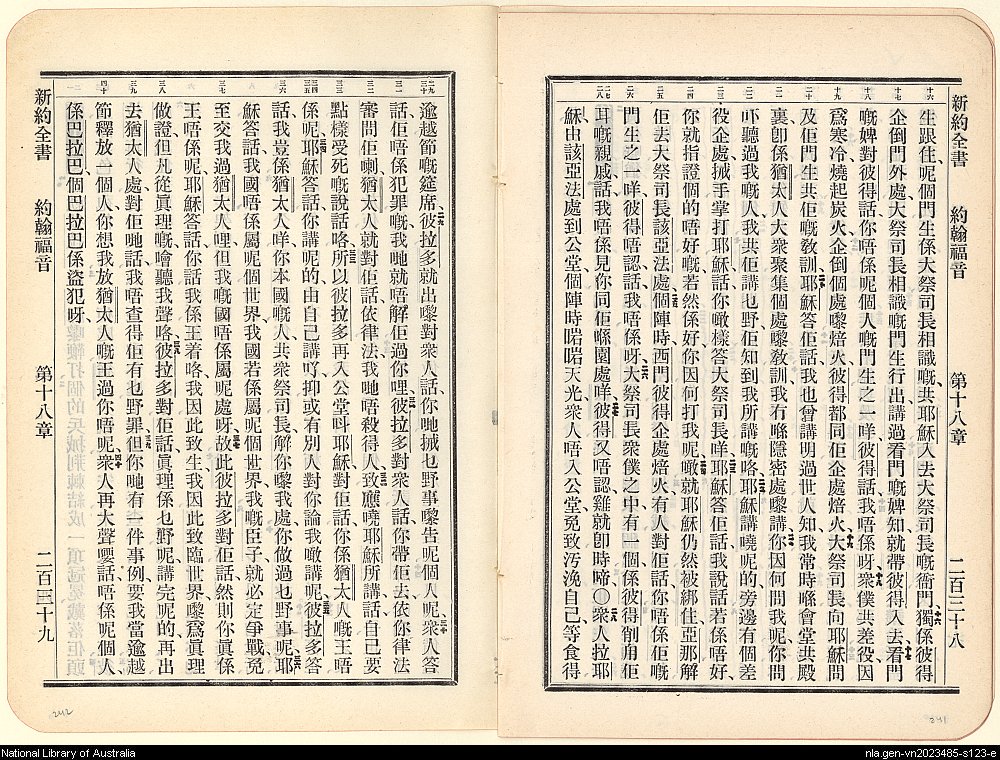 新約全書 約翰福音 第十八章 二百三十八
十六 十七 十八 十九 二十 二一 二二 二三 二四 二五 二六 二七 二八
生跟住、呢個門生係大祭司長相識嘅、共耶穌入去大祭司長嘅衙門、獨係彼得
企倒門外處、大祭司長相識嘅門生行出、講過看門嘅婢知、就帶彼得入去、看門
嘅婢對彼得話、你唔係呢個人嘅門生之一咩、彼得話、我唔係呀、衆僕共差役、因
爲寒冷、燒起炭火、企倒個處嚟焙火、彼得都同佢企處焙火、大祭司長向耶穌問
及佢門生、共佢嘅敎訓、耶穌答佢話、我也曾講明過世人知、我常時喺會堂、共殿
裏、卽係猶太人大衆聚集個處嚟敎訓、我冇喺隱密處嚟講、你因何問我呢、你問
吓聽過我嘅人、我共佢講乜野、佢知到我所講嘅咯、耶穌講嘵呢的、旁邊有個差
役企處、搣手掌打耶穌、話你噉樣答大祭司長咩、耶穌答佢話、我說話若係唔好、
你就指證個的唔好嘅、若然係好、你因何打我呢、噉就耶穌仍然被綁住、亞那解
佢去大祭司長該亞法處、個陣時西門彼得企處焙火、有人對佢話、你唔係佢嘅
門生之一咩、彼得唔認、話我唔係呀、大祭司長衆僕之中、有一個係彼得削甩佢
耳嘅親戚、話我唔係見你同佢喺園處咩、彼得又唔認、雞就卽時啼、○衆人拉耶
穌由該亞法處、到公堂、個陣時啱啱天光、衆人唔入公堂、免致汚浼自己、等食得
二九 三十 三一 三二 三三 三四 三五 三六 三七 三八 三九 四十
逾越節嘅筵席、彼拉多就出嚟、對衆人話、你哋搣乜野事嚟告呢個人呢、衆人答
話、佢唔係犯罪嘅、我哋就唔解佢過你哩、彼拉多對衆人話、你帶佢去、依你律法
審問佢喇、猶太人就對佢話、依律法、我哋唔殺得人、致應嘵耶穌所講話、自己要
點樣受死嘅說話咯、所以彼拉多再入公堂、呌耶穌對佢話、你係猶太人嘅王唔
係呢、耶穌答話、你講呢的由自己講吖、抑或有別人對你論我噉講呢、彼拉多答
話、我豈係猶太人咩、你本國嘅人共衆祭司長、解你嚟我處、你做過乜野事呢、耶
穌答話、我國唔係屬呢個世界、我國若係屬呢個世界、我嘅臣子就必定爭戰、免
至交我過猶太人哩、但我嘅國唔係屬呢處呀、故此彼拉多對佢話、然則你眞係
王唔係呢、耶穌答話、你話我係王着咯、我因此致生、我因此致臨世界、嚟爲眞理
做證、但凡從眞理嘅、噲聽我聲咯、彼拉多對佢話、眞理係乜野呢、講完呢的、再出
去猶太人處、對佢哋話、我唔查得佢有乜野罪、但你哋有一件事例、要我當逾越
節釋放一個人、你想我放猶太人嘅王過你唔呢、衆人再大聲嚶話、唔係呢個人、
係巴拉巴、個巴拉巴係盜犯呀、
新約全書 約翰福音 第十八章 二百三十九
242
241
National Library of Australia
nla.gen-vn2023485-s123-e